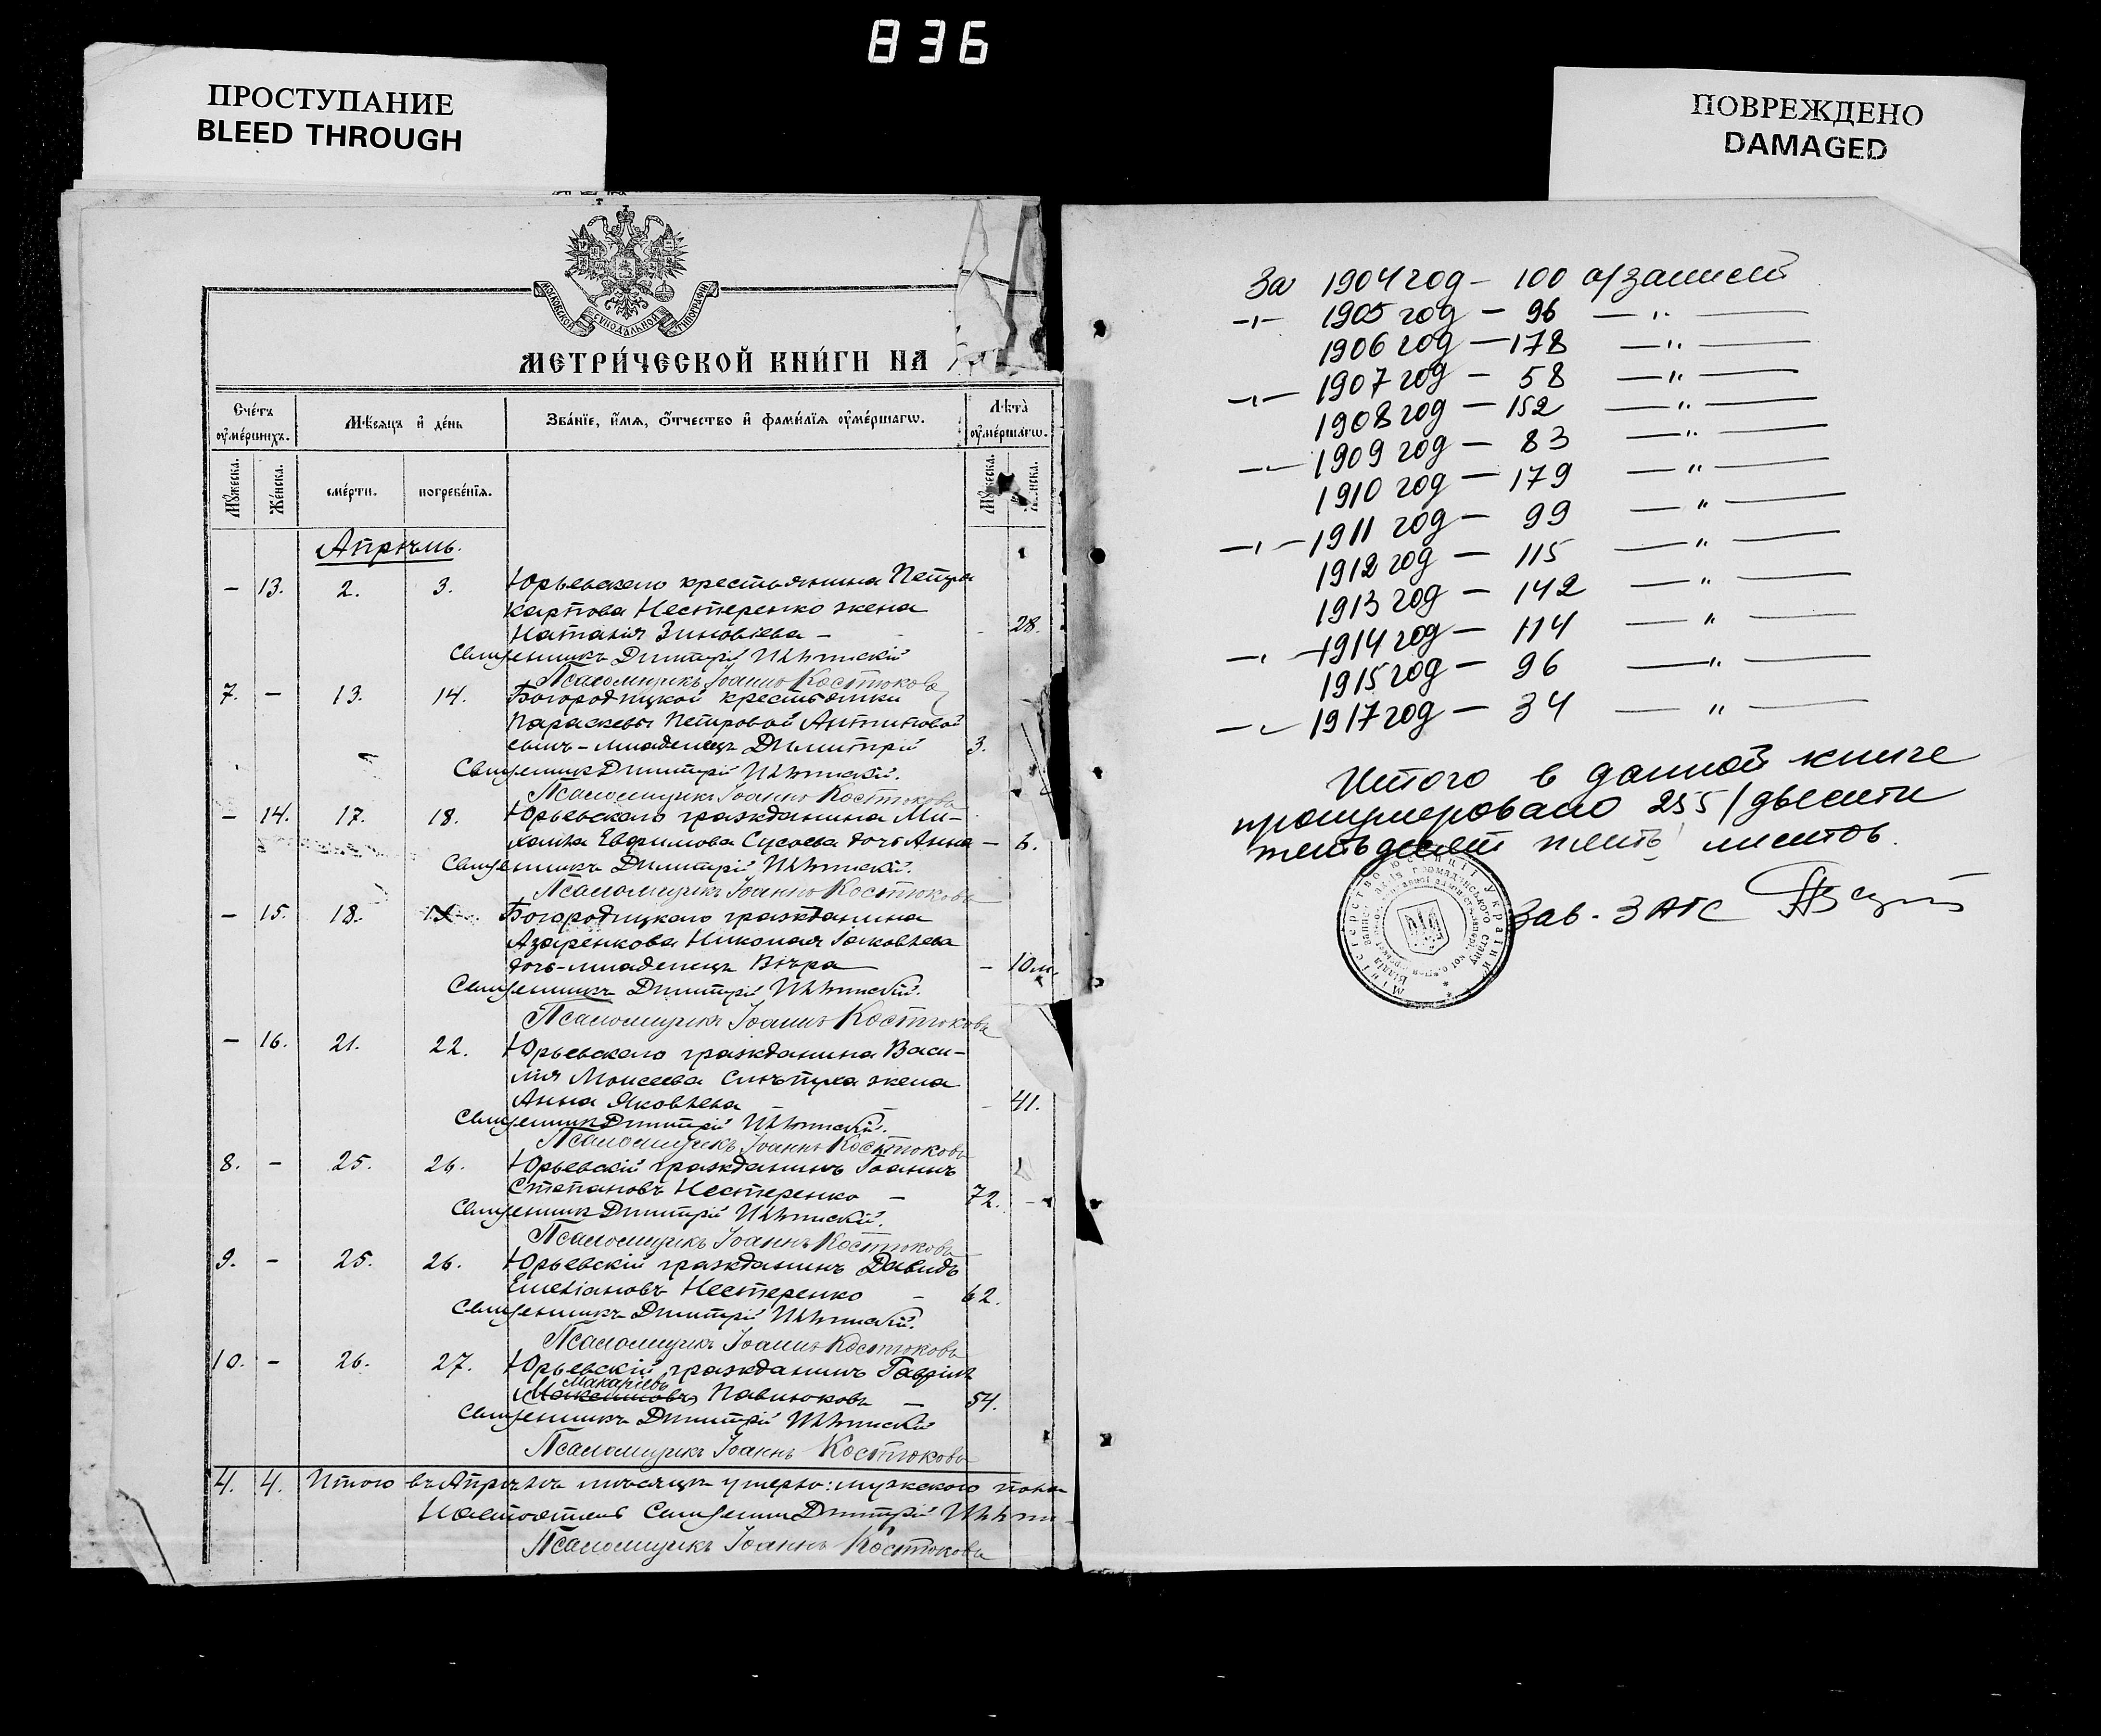 836
ПРОСТУПАНИЕ
BLEED THROUGH
ПОВРЕЖДЕНО
DAMAGED
МОСКОВСКОЙ СѴНОДАЛЬНОЙ ТИПОГРАФІИ
МЕТРИ́ЧЕСКОЙ КНИ́ГИ НА
Сче́тъ оу҆ме́ршихъ.
Мѣ́сяцъ и҆ де́нь
Зва́нїе, и҆́мя, ѻ҆́тчество и҆ фами́лїя оу҆ме́ршагѡ.
Лѣта̀ оу҆ме́ршагѡ.
Мꙋ́жеска.
Же́нска.
сме́рти.
погребе́нїя.
Мꙋ́жеска.
Апрѣль.
– 13. 2. 3. Юрьевскаго крестьянина Петра
Карпова Нестеренко жена
Наталія Зиновіева – – 28.
Священникъ Димитрій
Псаломщикъ Іоаннъ Костюковъ
7. – 13. 14. Богородицкой крестьянки
Параскевы Петровой Антиповой
сынъ – младенецъ Димитрій 3.
Священникъ Димитрій
Псаломщикъ Іоаннъ Костюковъ
– 14. 17. 18. Юрьевскаго гражданина Ми-
хаила Евфимова Сусоева дочь Анна – 6.
Священникъ Димитрій
Псаломщикъ Іоаннъ Костюковъ
– 15. 18. Богородицкаго гражданина
Азаренкова Николая Іаковлева
дочь-младенецъ Вѣра – 10 м.
Священникъ Димитрій
Псаломщикъ Іоаннъ Костюковъ
– 16. 21. 22. Юрьевскаго гражданина Васи-
лія Моисеева жена
Анна Яковлева – 41.
Священникъ Димитрій
Псаломщикъ Іоаннъ Костюковъ
8. – 25. 26. Юрьевскій гражданинъ Іоаннъ
Степановъ Нестеренко – 72. –
Священникъ Димитрій
Псаломщикъ Іоаннъ Костюковъ
9. – 25. 26. Юрьевскій гражданинъ Давидъ
Емеліановъ Нестеренко – 62.
Священникъ Димитрій
Псаломщикъ Іоаннъ Костюковъ
10. – 26. 27. Юрьевскій гражданинъ Гавріилъ
Макаріевъ
Павлюковъ – 54.
Священникъ Димитрій
Псаломщикъ Іоаннъ Костюковъ
4. 4. Итого въ Апрѣлѣ мѣсяцѣ умерло: мужескаго пола
Настоятель Священникъ Димитрій
Псаломщикъ Іоаннъ Костюковъ
За 1904 год – 100 а/записей
–"– 1905 год – 96 –"–
1906 год – 178 –"–
–"– 1907 год – 58 –"–
1908 год – 152 –"–
–"– 1909 год – 83 –"–
1910 год – 179 –"–
–"– 1911 год – 99 –"–
1912 год – 115 –"–
1913 год – 142 –"–
–"– 1914 год – 114 –"–
1915 год – 96 –"–
–"– 1917 год – 34 –"–
Итого в данной книге
пронумеровано 255 /двести
пятьдесят пять/ листов.
Зав. ЗАГС